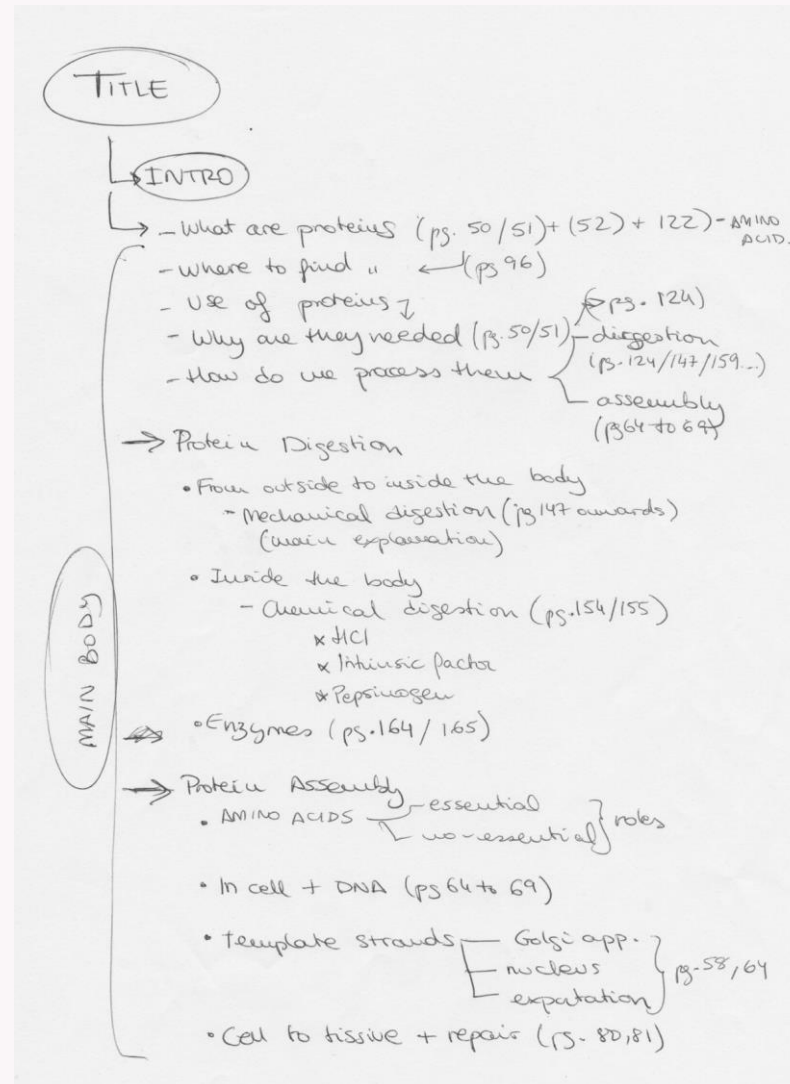 TITLE
INTRO
- What are proteins (pg. 50/51) + (52) + 122) - AMINO
ACID.
- Where to find " ← (pg 96)
- Use of proteins (pg. 124)
- Why are they needed (pg. 50/51) - disgestion
(pg. 124/147/159...)
- How do we process them
assembly
(pg 64 to 69)
→ Protein Digestion
• From outside to inside the body
- Mechanical digestion (pg 147 onwards)
(main explanation)
• Inside the body
- Chemical digestion (pg. 154/155)
x HCl
x Intrinsic factor
x Pepsinogen
MAIN BODY
• Enzymes (pg. 164 / 165)
→ Protein Assembly
• AMINO ACIDS - essential
no-essential } roles
• In cell + DNA (pg 64 to 69)
• Template strands - Golgi app.
- nucleus } pg. 58, 64
- expotation
• Cell to tissive + repair (pg. 80, 81)